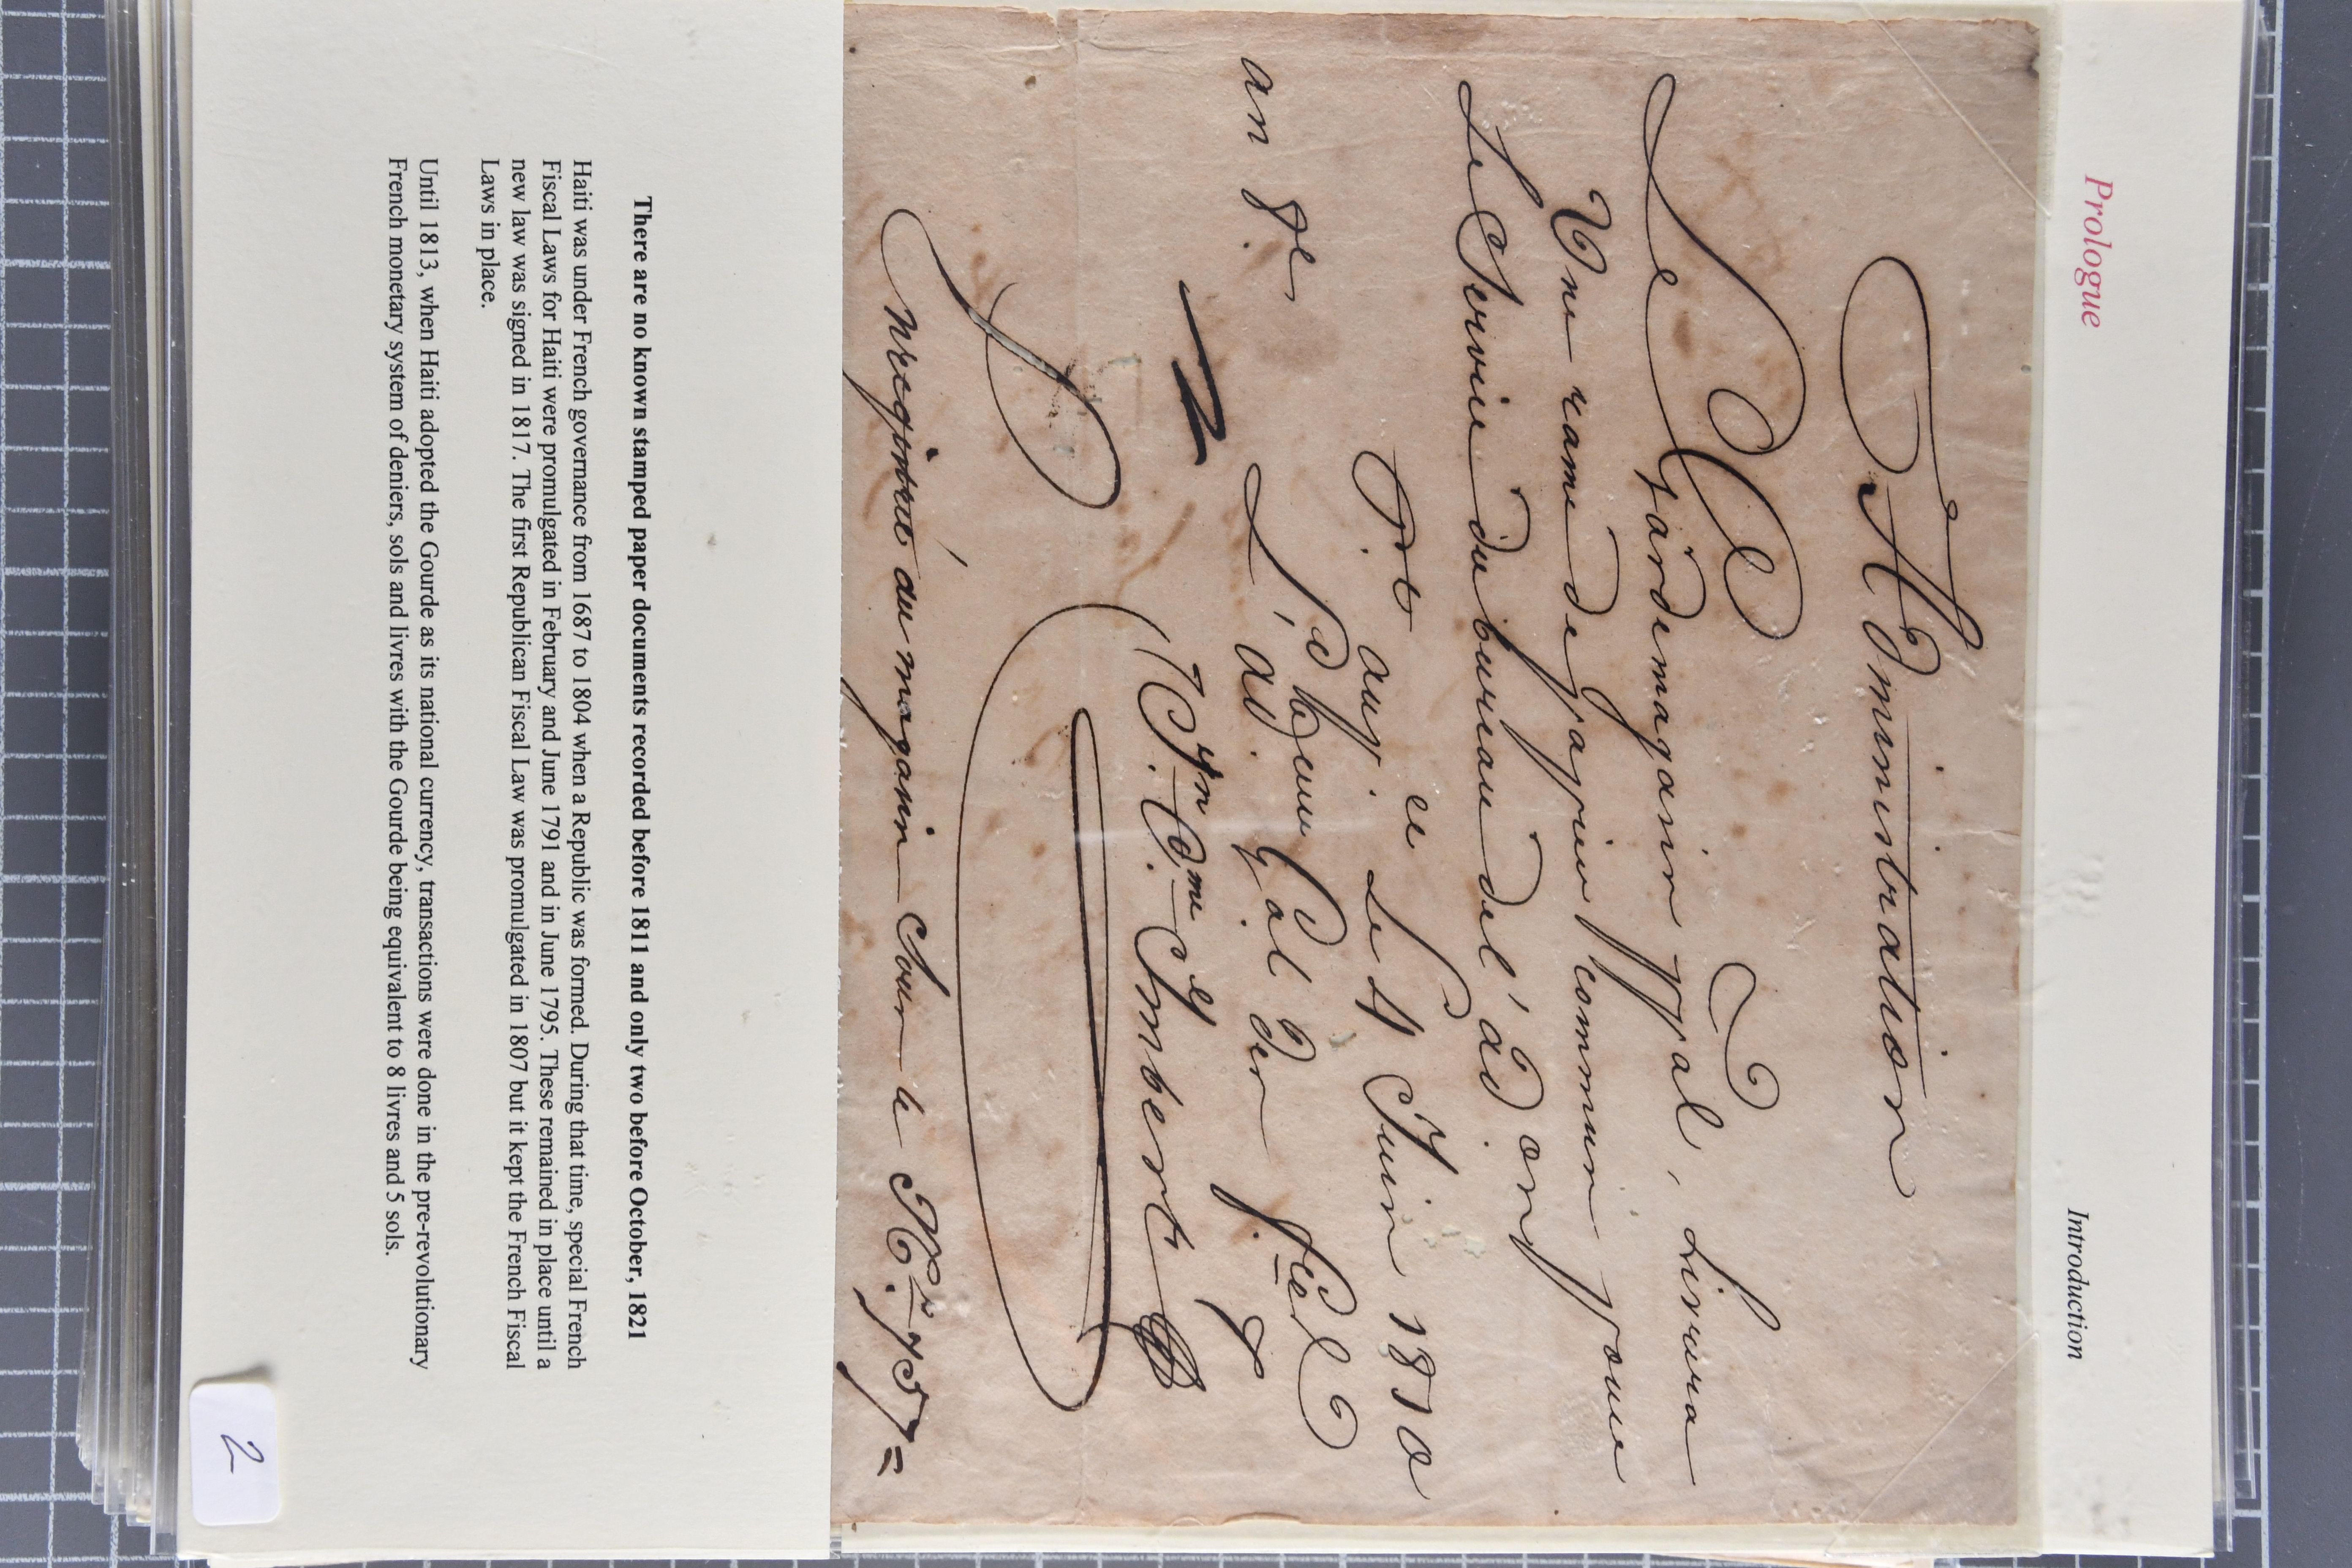 Prologue
Introduction
Administration
Le gardemagasin ppal, Livrera
Une rame de papier commun pour
Le Service du bureau del'ad.on
P.t au p. ce Le 4 Juin 1810
an 7e
L'ad. G.al des f.ces
J.n C.me Imbert
Enregistré au magasin sour le N.o 757=
There are no known stamped paper documents recorded before 1811 and only two before October, 1821
Haiti was under French governance from 1687 to 1804 when a Republic was formed. During that time, special French
Fiscal Laws for Haiti were promulgated in February and June 1791 and in June 1795. These remained in place until a
new law was signed in 1817. The first Republican Fiscal Law was promulgated in 1807 but it kept the French Fiscal
Laws in place.
Until 1813, when Haiti adopted the Gourde as its national currency, transactions were done in the pre-revolutionary
French monetary system of deniers, sols and livres with the Gourde being equivalent to 8 livres and 5 sols.
2